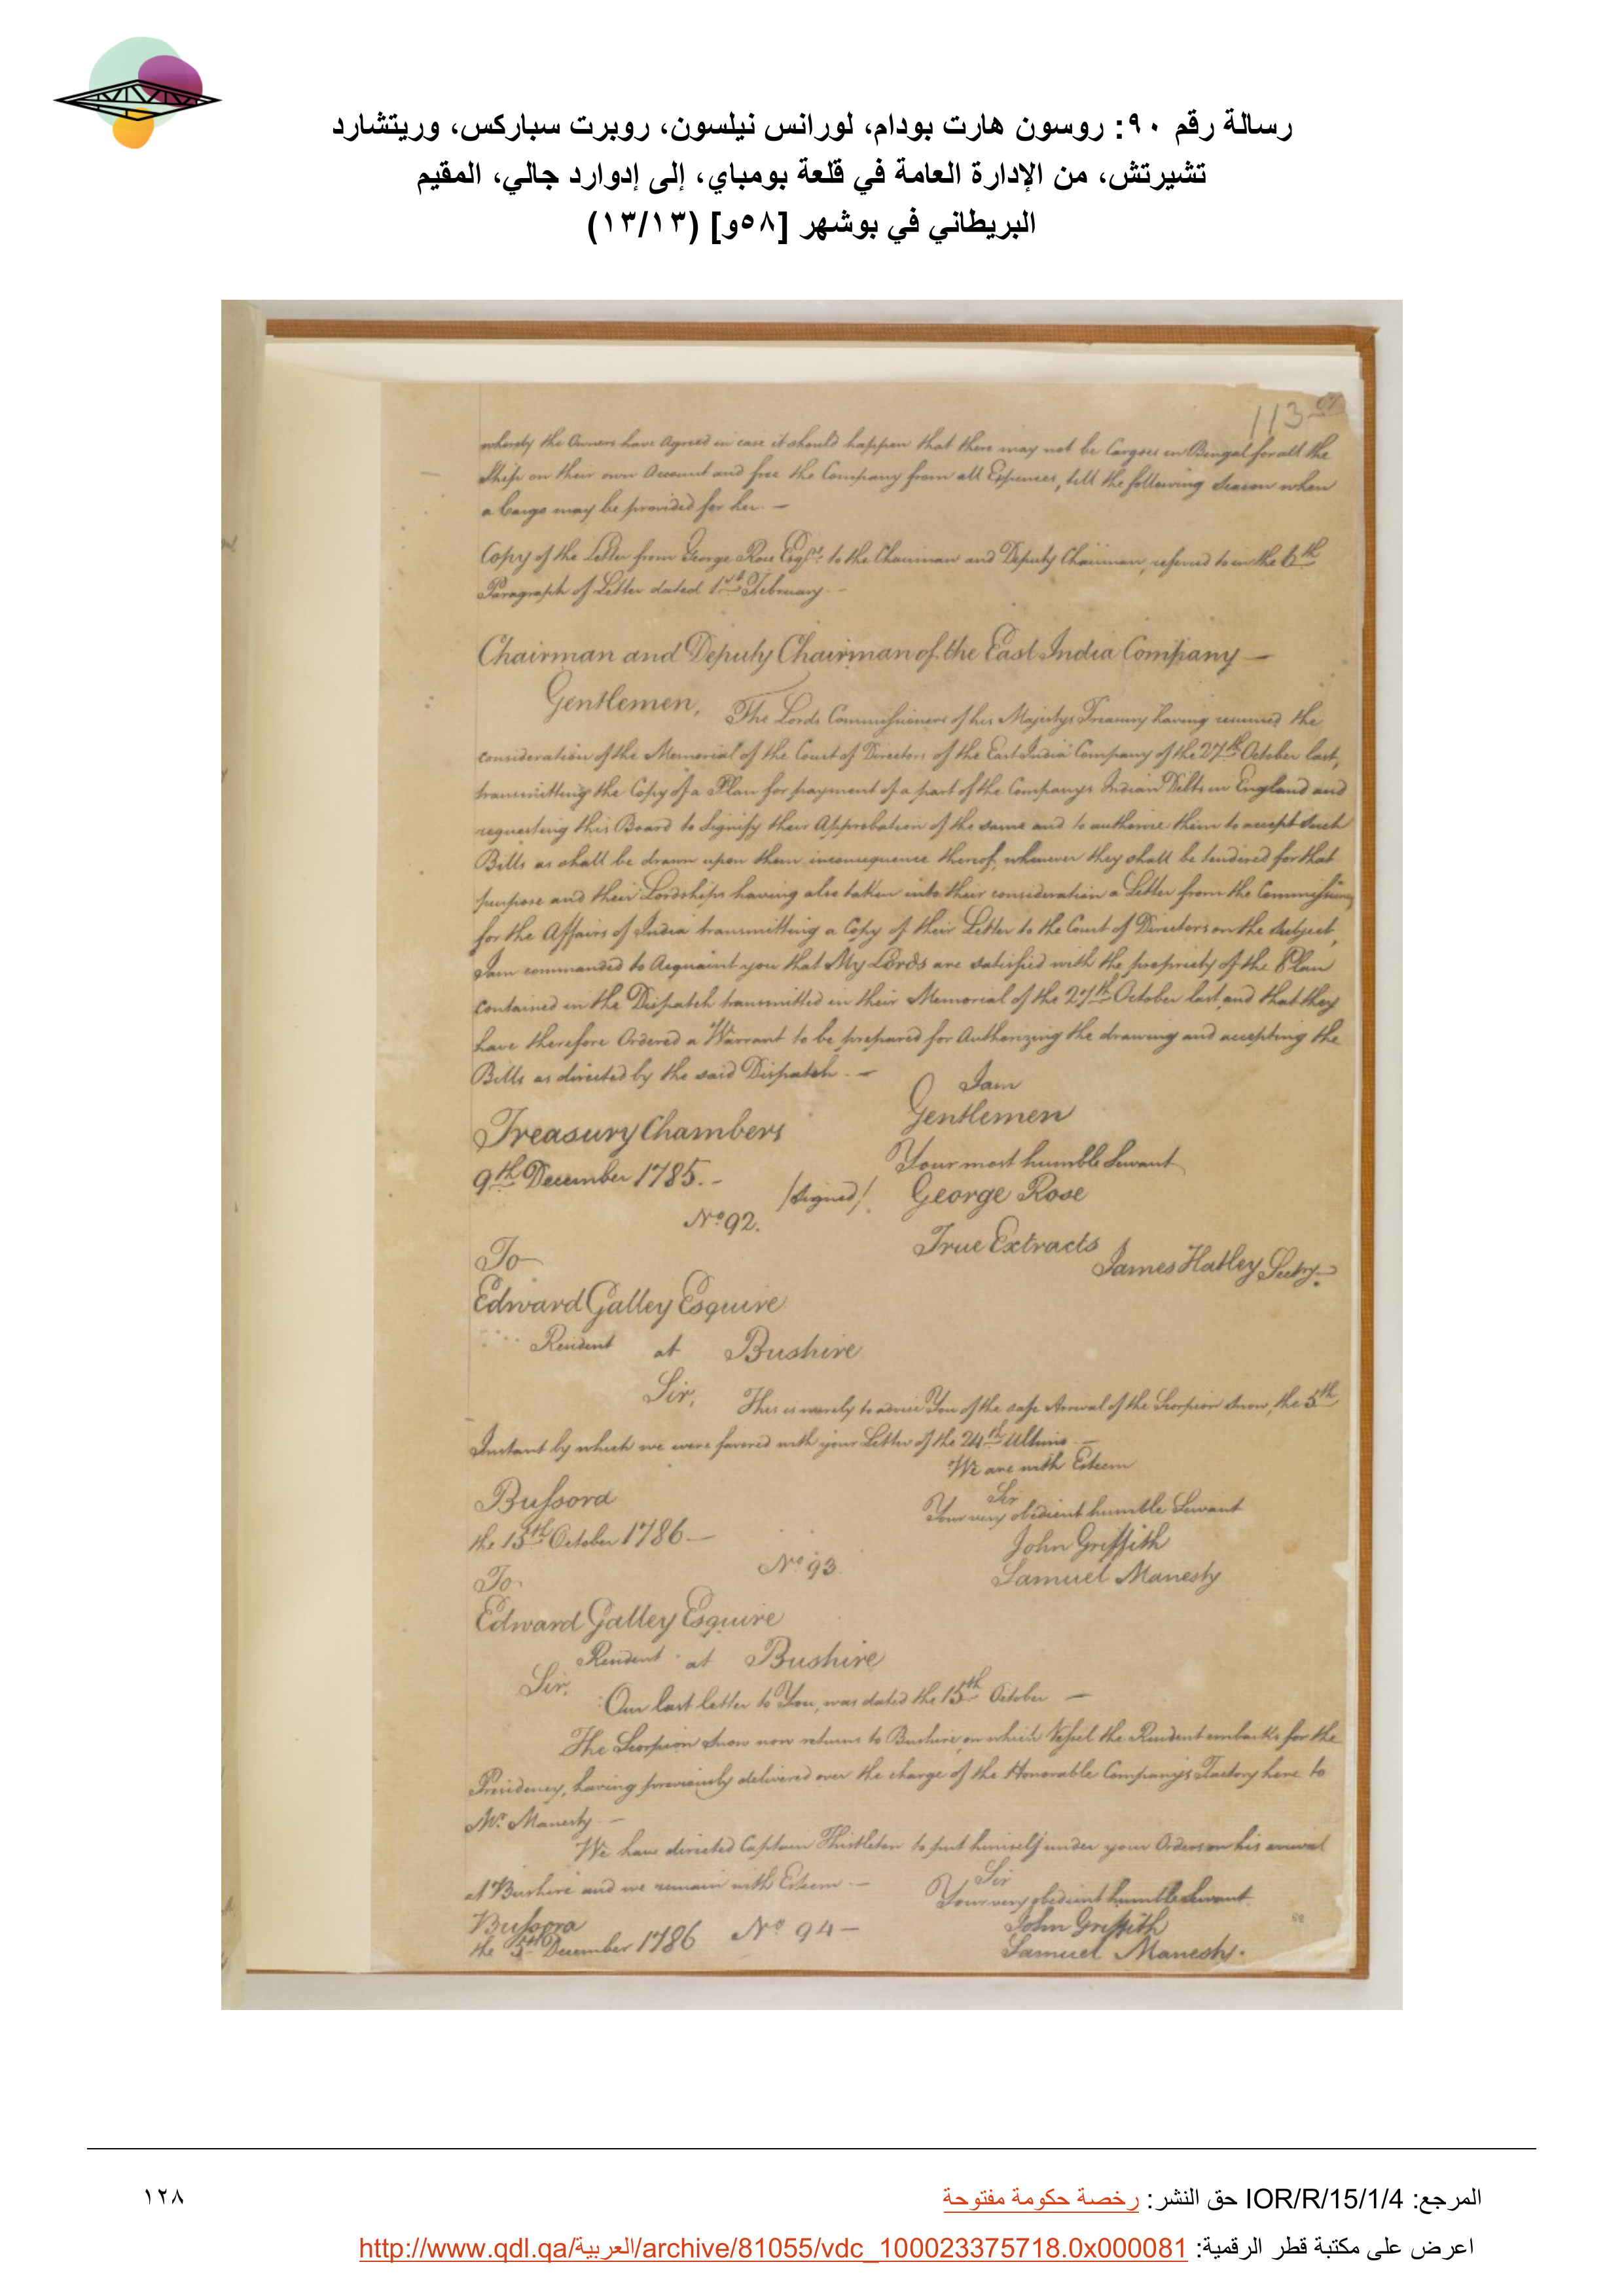 رسالة رقم ٩٠: روسون هارت بودام، لورانس نيلسون، روبرت سباركس، وريتشارد
تشيرتش، من الإدارة العامة في قلعة بومباي، إلى إدوارد جالي، المقيم
البريطاني في بوشهر [٥٨و] (١٣/١٣)
113
whereby the Owners have Agreed in case it should happen that there may not be Cargoes in Bengal for all the
Ship on their own Account and free the Company from all Expences, till the following Season when
a Cargo may be provided for her. —
Copy of the Letter from George Rose Esqr. to the Chairman and Deputy Chairman, referred to in the 6th
Paragraph of Letter dated 1st February. —
Chairman and Deputy Chairman of the East India Company —
Gentlemen, The Lords Commissioners of his Majestys Treasury having resumed the
consideration of the Memorial of the Court of Directors of the East India Company of the 27th October last,
transmitting the Copy of a Plan for payment of a part of the Companys Indian Debts in England and
requesting this Board to Signify their Approbation of the same and to authorise them to accept such
Bills as shall be drawn upon them inconsequence thereof, whenever they shall be tendered for that
purpose and their Lordships having also taken into their consideration a Letter from the Commissioners
for the Affairs of India transmitting a Copy of their Letter to the Court of Directors on the subject,
I am commanded to Acquaint you that My Lords are satisfied with the propriety of the Plan
contained in the Dispatch transmitted in their Memorial of the 27th October last, and that they
have therefore Ordered a Warrant to be prepared for Authorizing the drawing and accepting the
Bills as directed by the said Dispatch. —
I am
Gentlemen
Treasury Chambers
Your most humble Servant
9th December 1785. —
/Signed/. George Rose
No. 92.
True Extracts
James Hatley Secty.
To
Edward Galley Esquire
Resident at Bushire
Sir, This is merely to advise You of the safe Arrival of the Scorpion Snow, the 5th
Instant by which we were favored with your Letter of the 24th Ultimo —
We are with Esteem
Sir
Bussora
Your very obedient humble Servant
the 15th October 1786 —
John Griffith
No. 93.
Samuel Manesty
To
Edward Galley Esquire
Resident at Bushire
Sir, Our last letter to You, was dated the 15th October —
The Scorpion Snow now returns to Bushire, on which Vessel the Resident embarks for the
Presidency, having previously delivered over the charge of the Honorable Companys Factory here to
Mr. Manesty —
We have directed Captain Thistleton to put himself under your Orders on his arrival
at Bushire and we remain with Esteem —
Sir
Your very obedient humble Servant
Bussora
John Griffith
the 5th December 1786 No 94 —
Samuel Manesty.
المرجع: IOR/R/15/1/4 حق النشر: رخصة حكومة مفتوحة
١٢٨
اعرض على مكتبة قطر الرقمية: http://www.qdl.qa/العربية/archive/81055/vdc_100023375718.0x000081